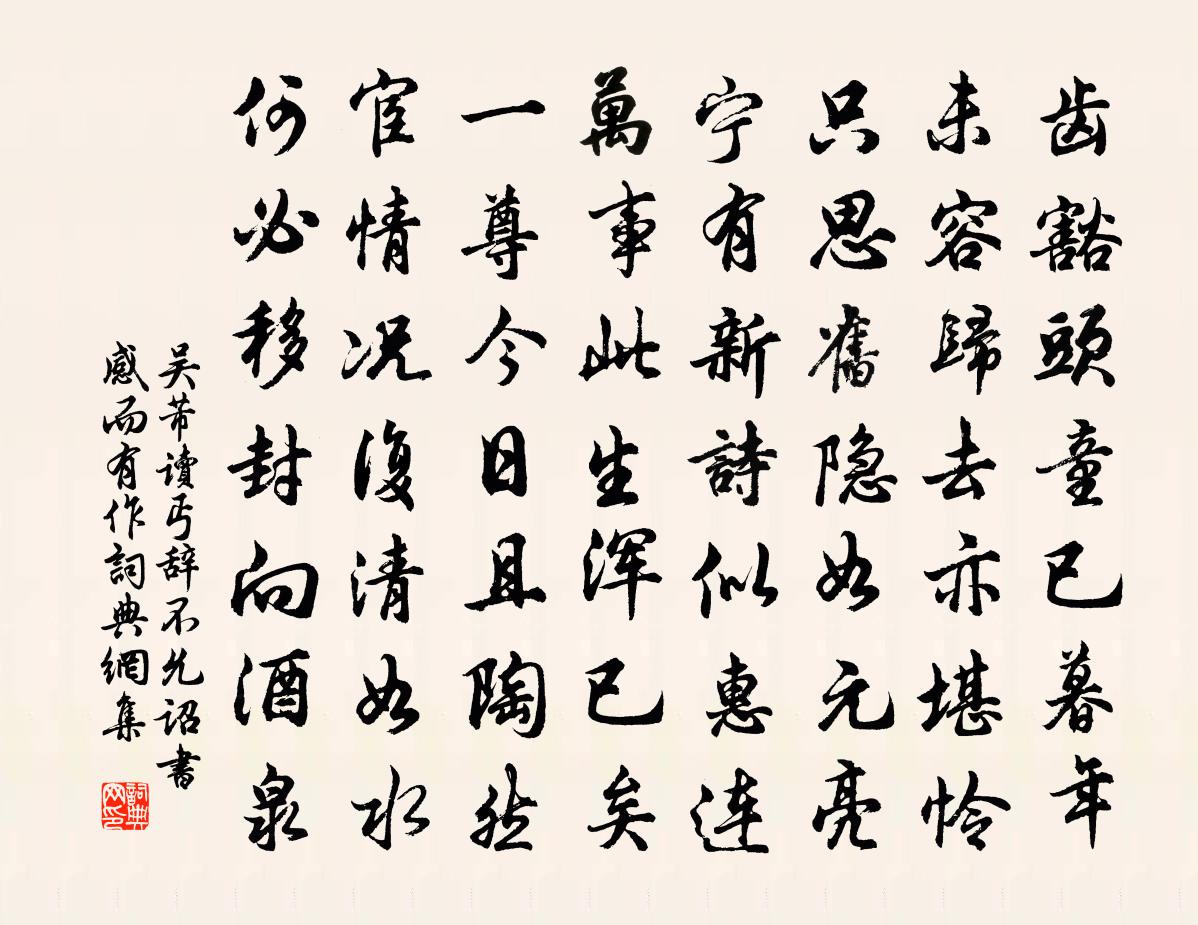 齿豁頭童已暮年
未容歸去亦堪怜
只思舊隐如元亮
宁有新詩似惠連
萬事此生浑已矣
一尊今日且陶然
宦情况復清如水
何必移封向酒泉
吴芾读丐辞不允诏書
感而有作詞典網集
詞典
网印